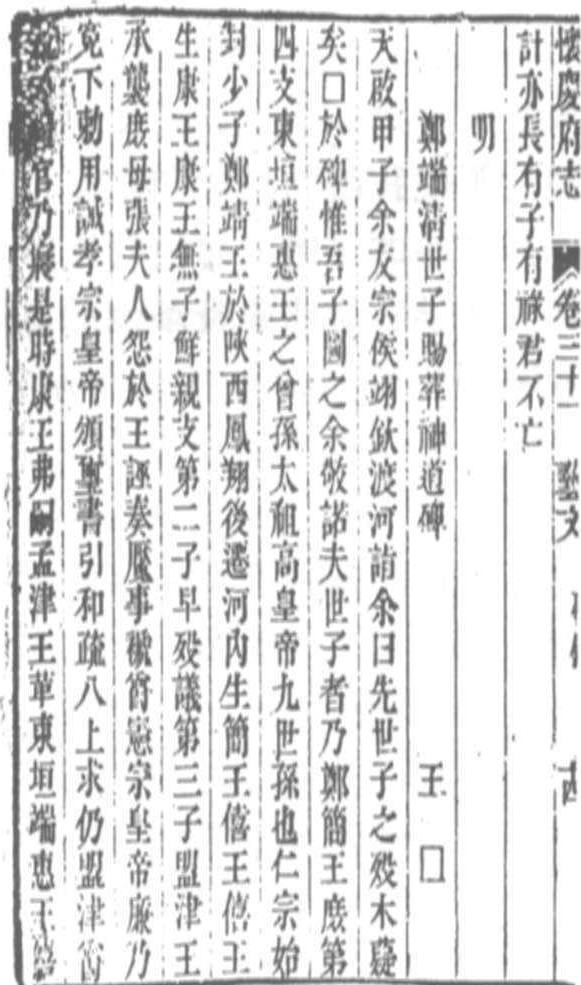 懷慶府志 卷三十一 藝文
計亦長有子有祿君不亡
明
鄭端清世子賜葬神道碑 王□
天啟甲子余友宗侯翊欽渡河請余曰先世子之歿木蘽
矣□於碑惟吾子圖之余敬諾夫世子者乃鄭簡王庶第
四支東垣端惠王之曾孫太祖高皇帝九世孫也仁宗始
封少子鄭靖王於陝西鳳翔後遷河內生簡王僖王僖王
生康王康王無子鮮親支第二子早歿議第三子盟津王
承襲庶母張夫人怨於王誣奏魘事褫爵憲宗皇帝廉乃
寃下勅用誠孝宗皇帝頒璽書引和疏八上求仍盟津爵
官乃寢是時康王弗嗣孟津王革東垣端惠王